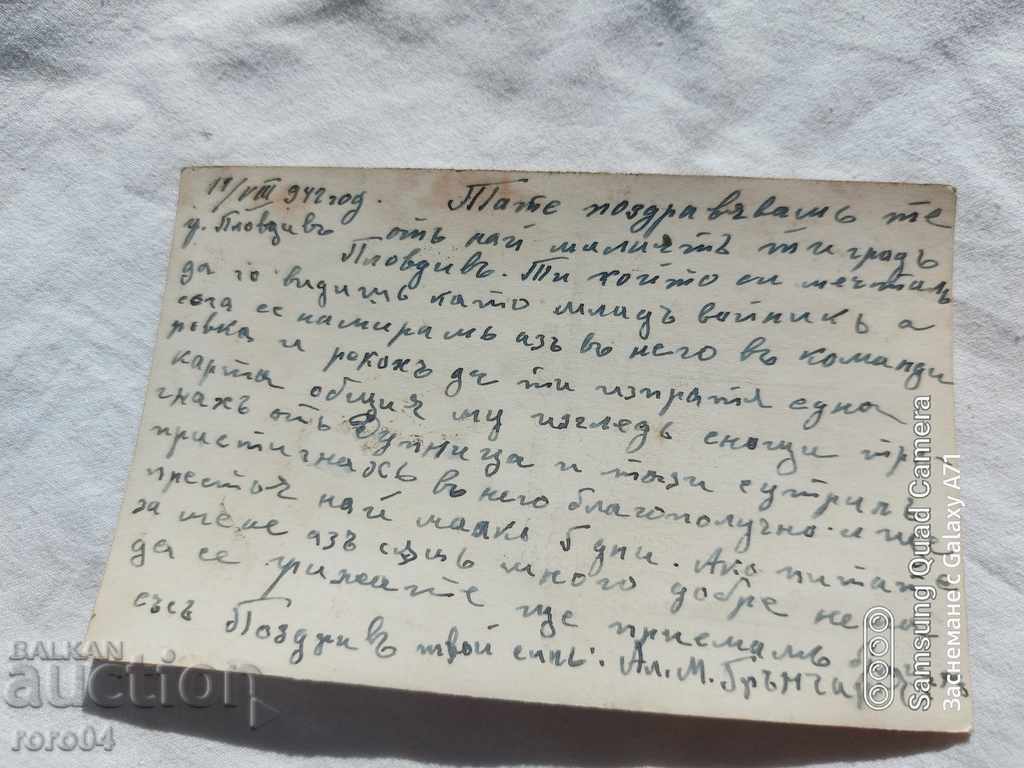 17/VIII 942 год. Тате поздравявамъ те
г. Пловдивъ отъ най милиятъ ти градъ
Пловдивъ. Ти който си мечталъ
да го видишъ като младъ войникъ а
сега се намирамъ азъ въ него въ команди
ровка и рекохъ да ти изпратя една
карта общия му изгледъ снощи тръ
гнахъ отъ Дупница и тази сутринь
пристигнахъ въ него благополучно и ще
престоя най малко 5 дни. Ако питате
за мене азъ съмь много добре не
да се грижите ще приемамъ
съсъ Поздравъ твой синъ: Ал. М. Брънчар
BALKAN
auction
roro04
Samsung Quad Camera
Заснемане с Galaxy A71